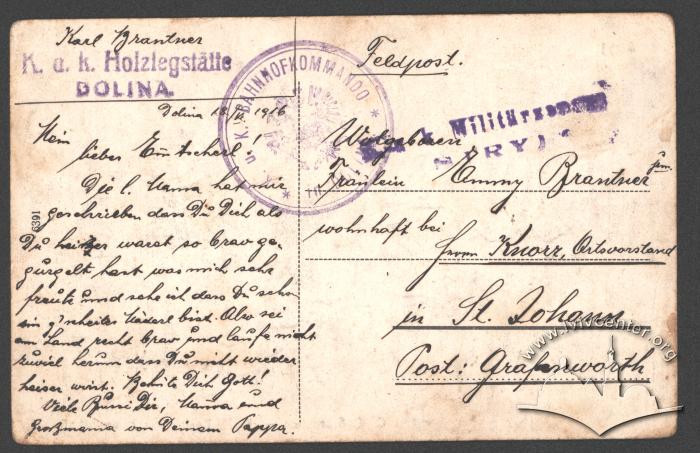 Karl Brantner
K. u. k. Holzlegstätte
DOLINA.
Dolina 18/ 1916
Mein
lieber Emscherl!
Die l. Mama hat mir
geschrieben dass Du Dich als
Du heiser warst so brav ge-
gurgelt hast was mich sehr
freute und sehe ich dass Du schon
ein g'scheites Mäderl bist. Also sei
am Land recht brav und laufe nicht
zuviel herum dass Du nicht wieder
heiser wirst. Behüte Dich Gott!
Viele Bussi Dir, Mama und
Großmama von Deinem Pappa.
6391
K. u. K. BAHNHOFKOMMANDO
Feldpost.
Militärzensur
STRYJ
Wolgeboren
Fräulein Emmy Brantner jun.
wohnhaft bei
Herrn Knorz, Ortsvorstand
in St. Johann
Post: Grafenwörth
www.lvivcenter.org